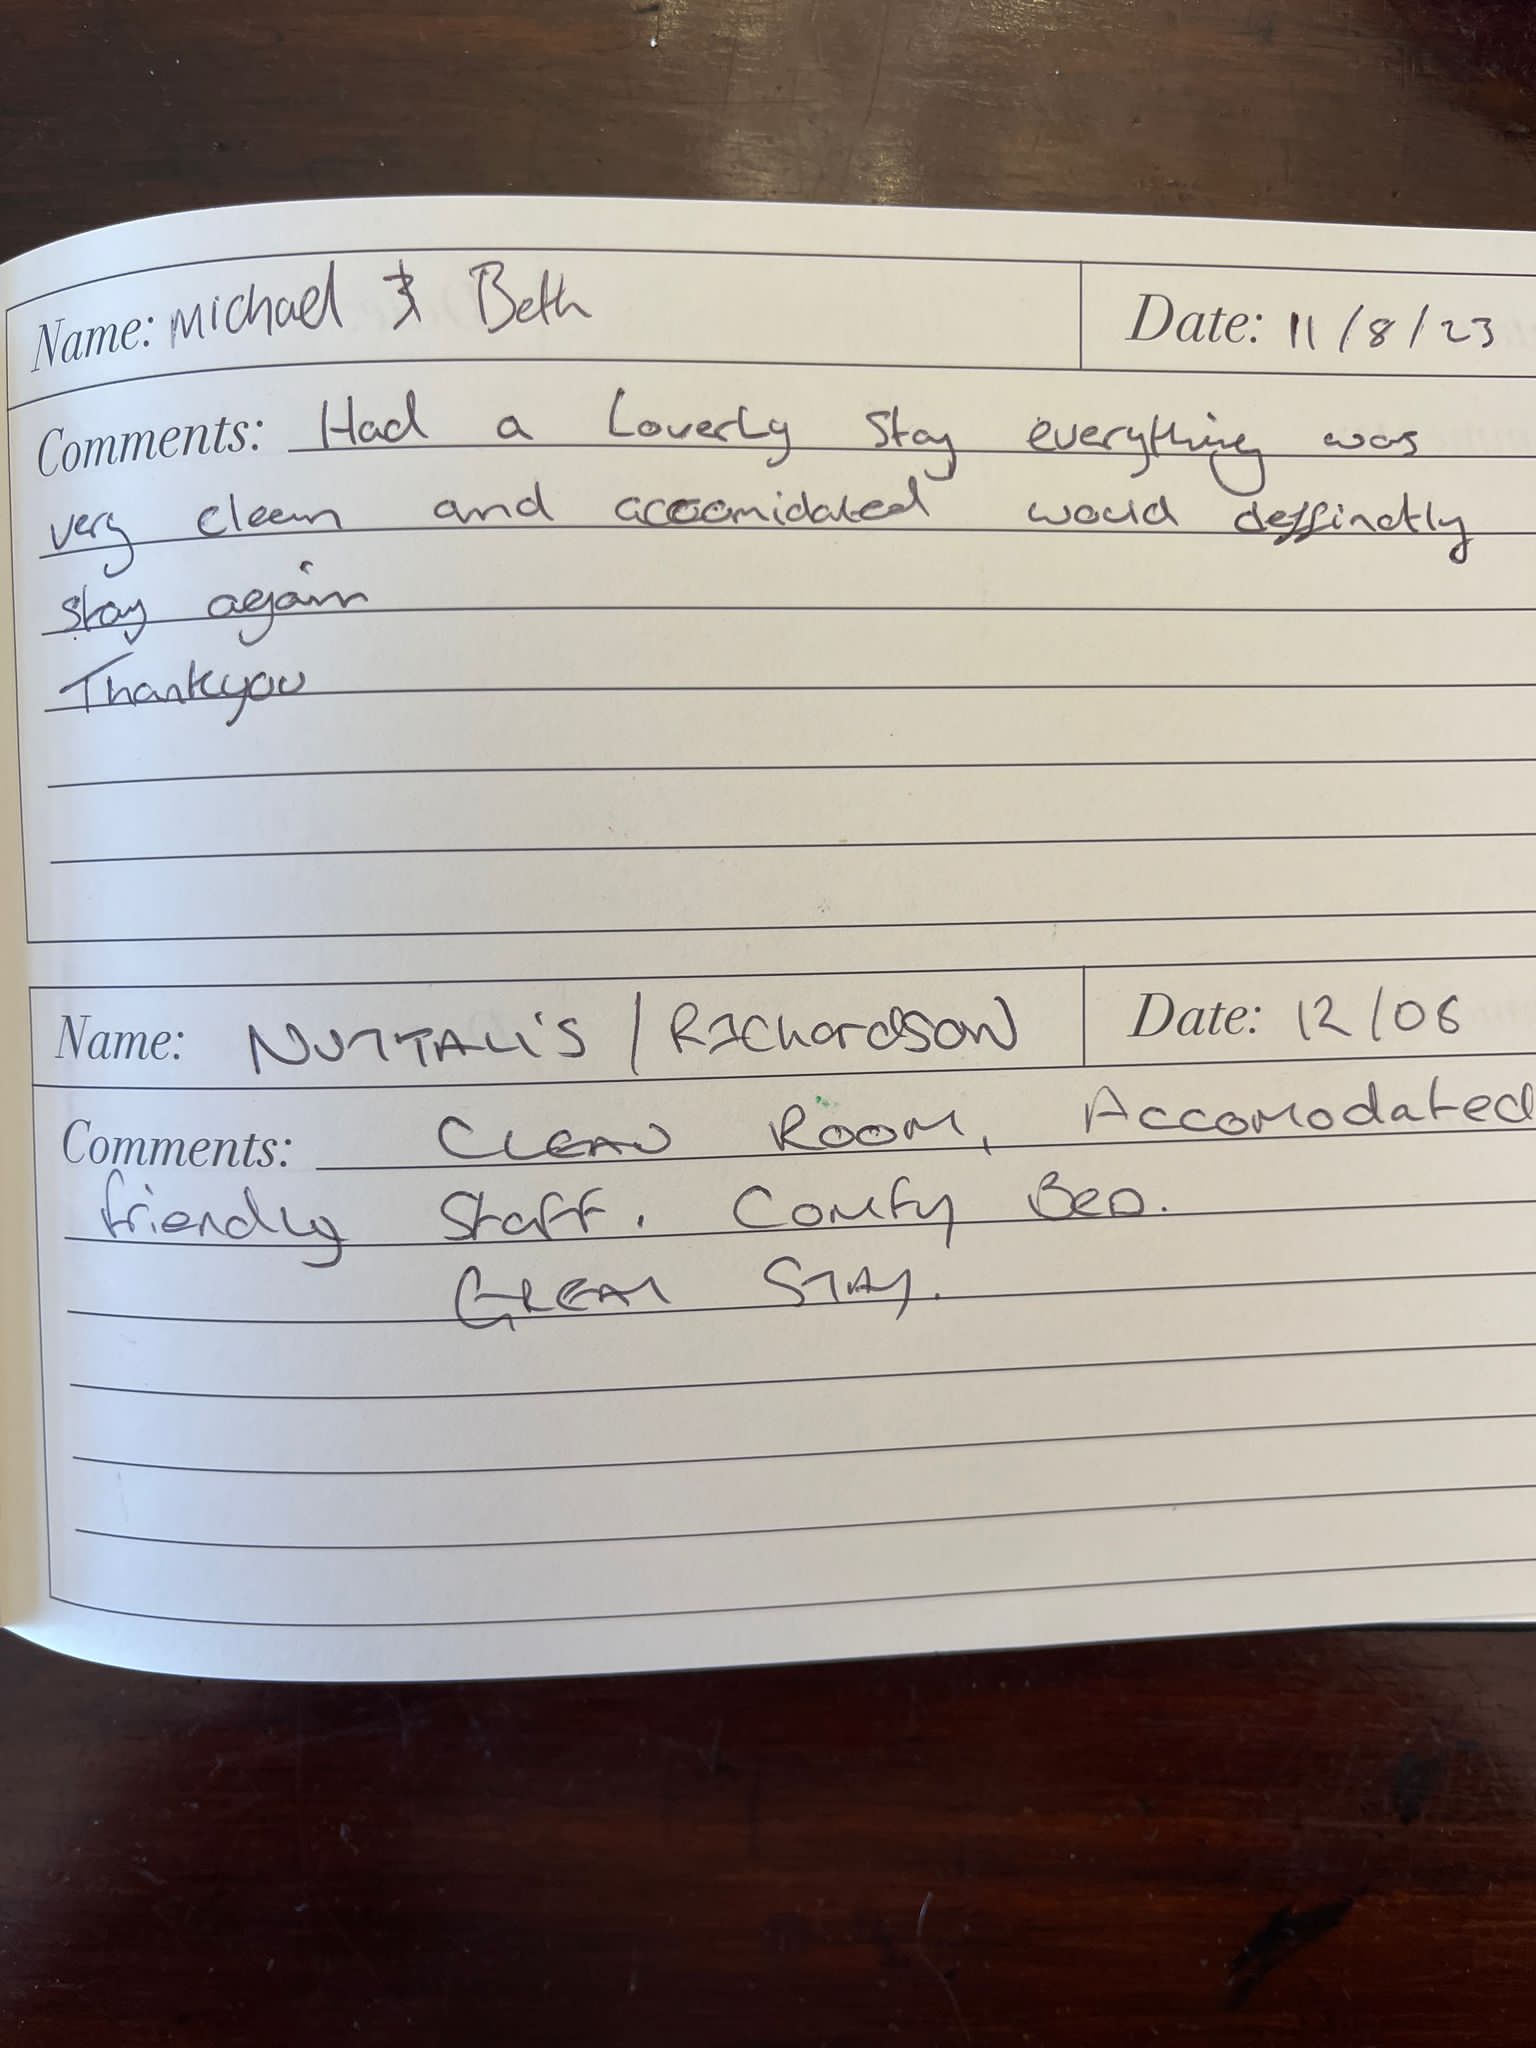 Name: Michael & Beth Date: 11/8/23
Comments: Had a Loverly stay everything was
very cleen and accomidated would deffinetly
stay again
Thankyou
Name: NUTTALL'S / RICHardSON Date: 12/08
Comments: CLEAN ROOM, Accomodated
friendly Staff. Comfy Bed.
GREAT STAY.